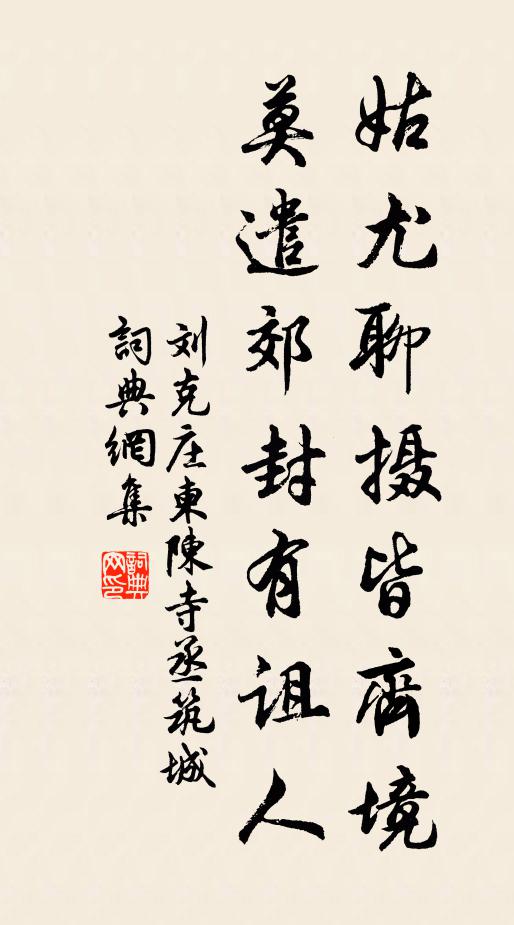 姑尤聊摄皆齊境
莫遣郊封有诅人
刘克庄東陳寺丞筑城
詞典網集
詞典网印